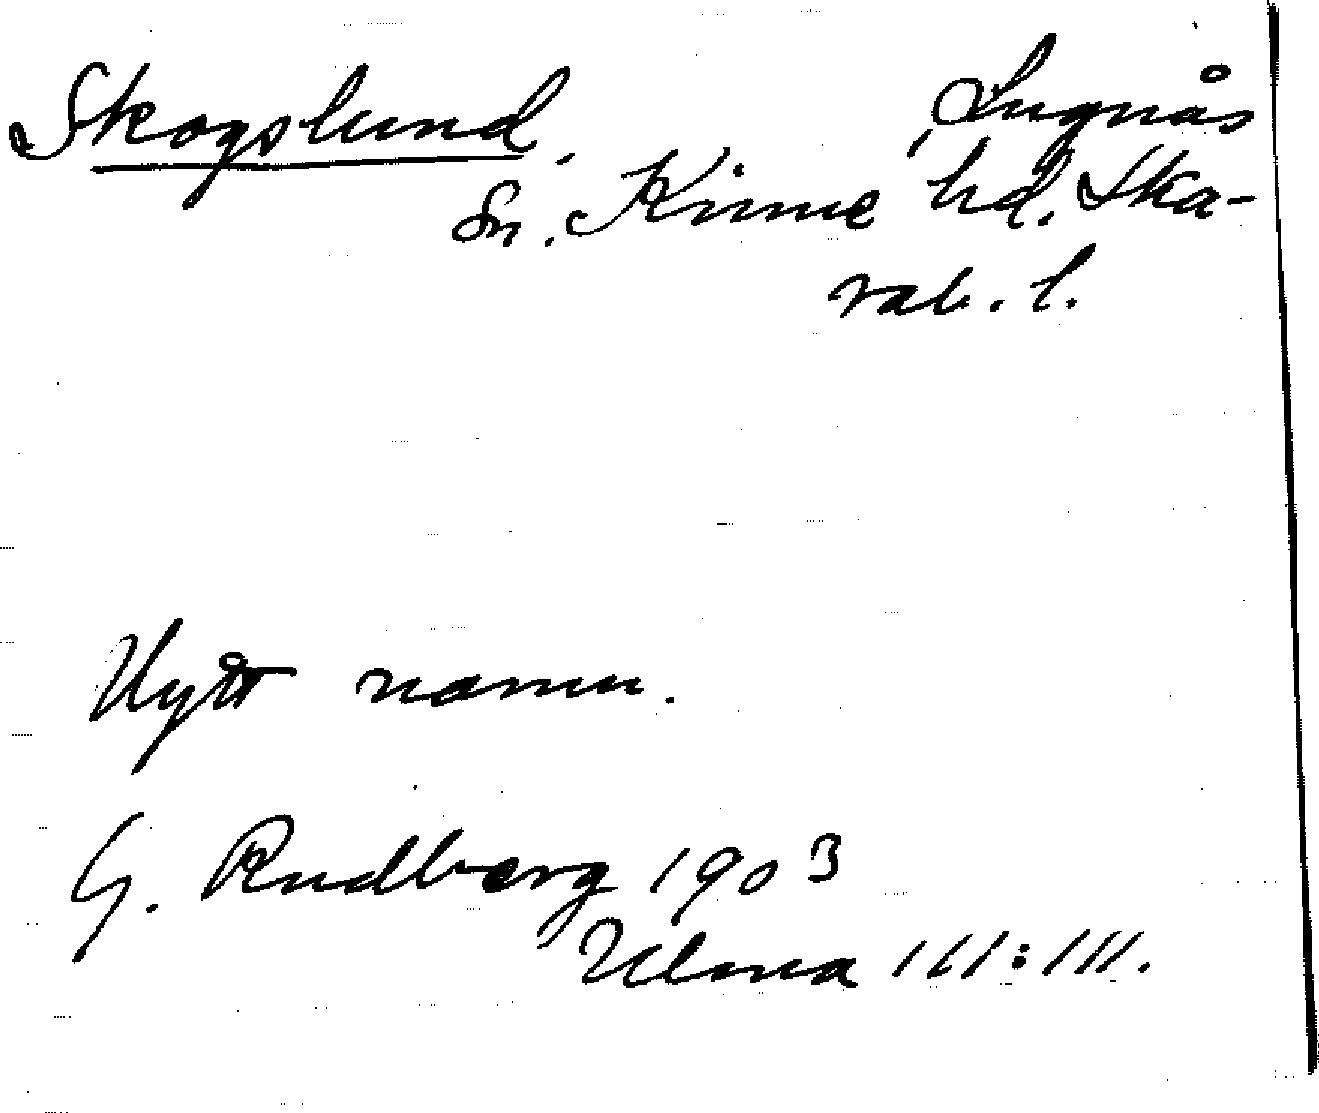 Skogslund, Lugnås
sn. Kinne hd. Ska-
rab. l.
Nytt namn.
G. Rudberg 1903
Ulma 111:111.